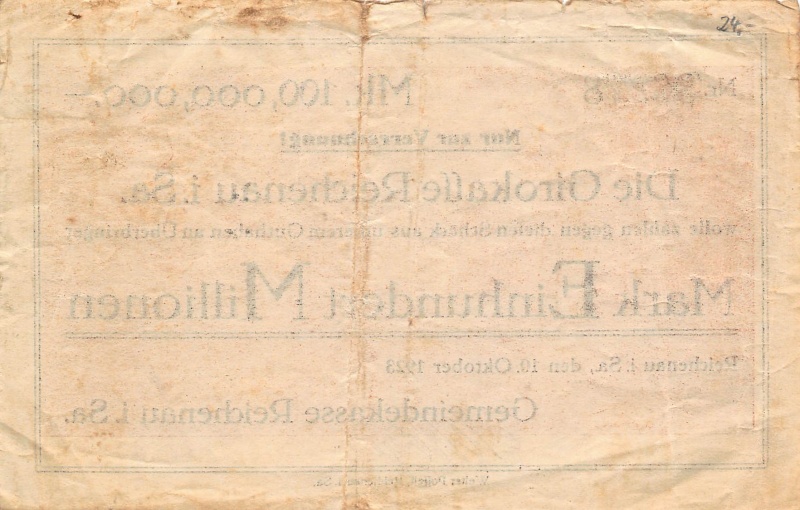 24,-
Nr. 8 Mk. 100,000,000.-
Nur zur Verrechnung!
Die Girokasse Reichenau i. Sa.
wolle zahlen gegen diesen Scheck aus unserem Guthaben an Überbringer
Mark Einhundert Millionen
Reichenau i. Sa., den 10. Oktober 1923
Gemeindekasse Reichenau i. Sa.